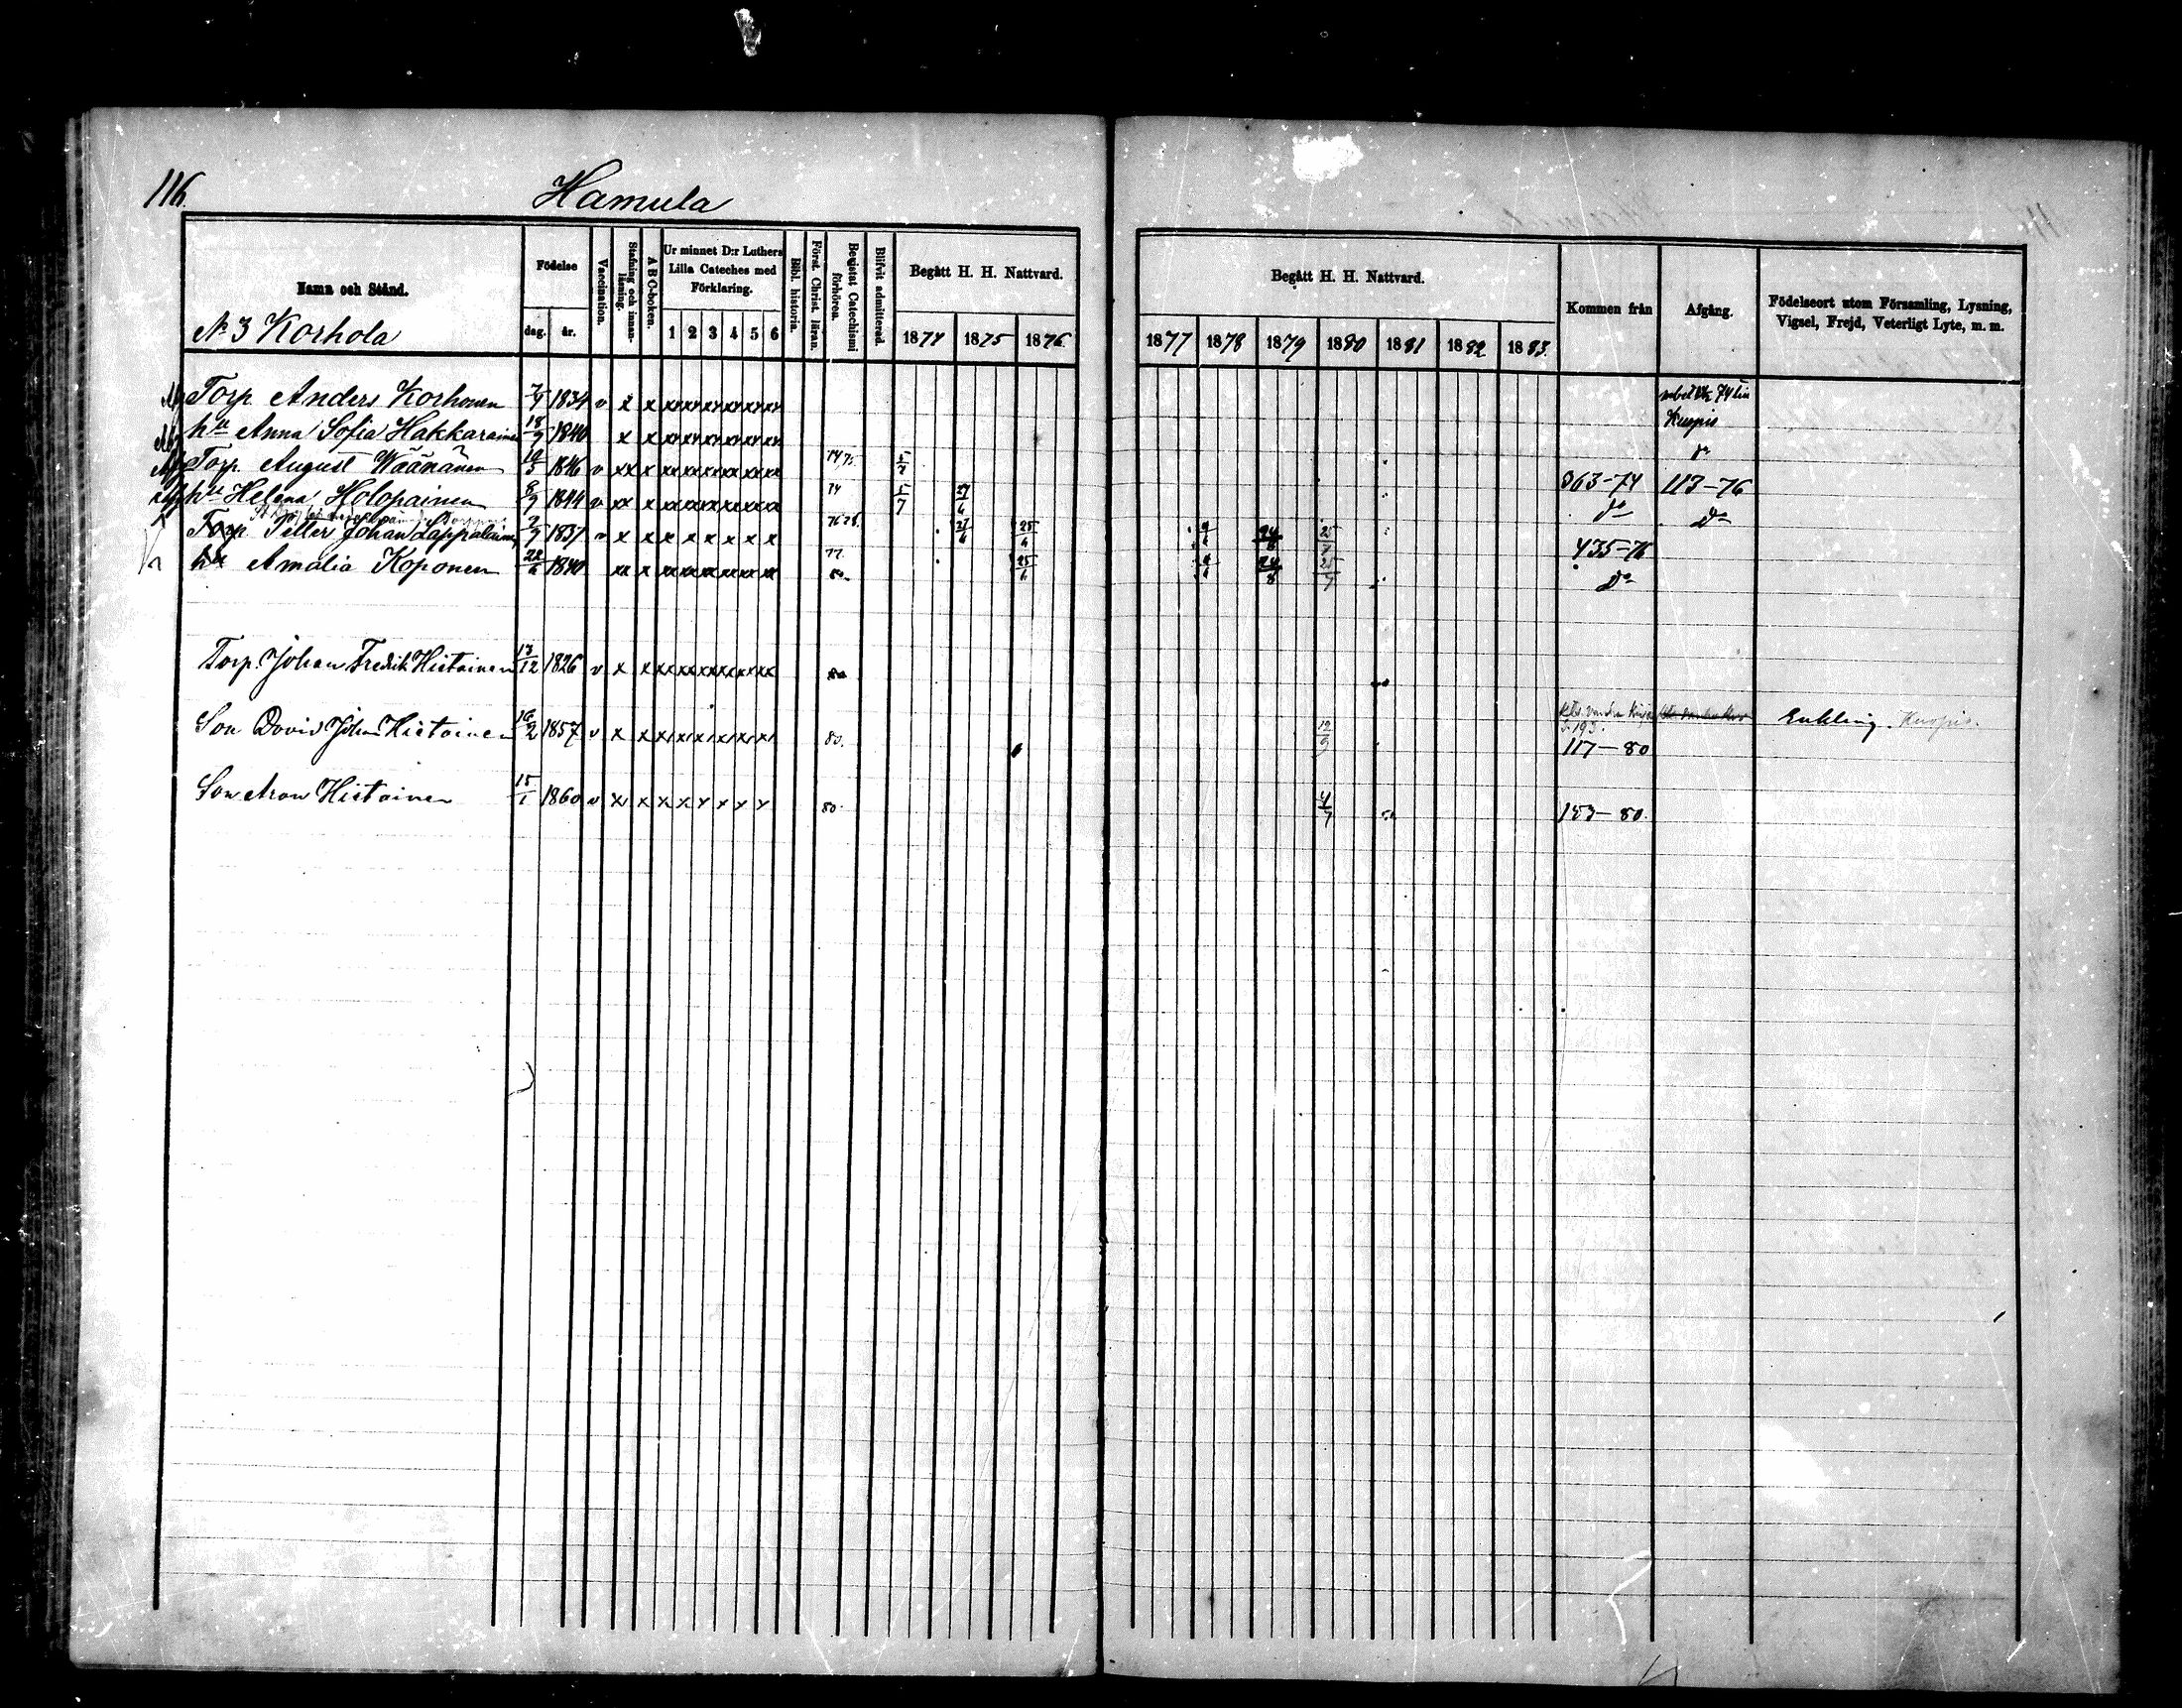 116.
Hamula
Namn och Stånd.
Födelse
dag. år.
Vaccination.
Stafning och innanläsning.
A B C-boken.
Ur minnet D:r Luthers Lilla Cateches med Förklaring.
1 2 3 4 5 6
Bibl. historia.
Först. Christ. läran.
Begistat Catechismi förhören.
Blifvit admitterad.
Begått H. H. Nattvard.
1874 1875 1876
Begått H. H. Nattvard.
1877 1878 1879 1880 1881 1882 1883.
Kommen från
Afgång.
Födelseort utom Församling, Lysning, Vigsel, Frejd, Veterligt Lyte, m. m.
N 3 Korhola
Torp Anders Korhonen 7/9 1834 v x x
74 Kuopio
hu Anna Sofia Hakkarainen 18/9 1840 x x
do
Torp. August Wäänänen 10/5 1846 v xx x 74,75. 5/7 363-74 113-76
hu Helena Holopainen 8/9 1844 v xx x 74 5/7 27/6 do do
Torp. Petter Johan Lappalainen 2/9 1837 v x x x x x x x x 27/6 25/6 24/8 25/7 435-76
hu Amalia Koponen 22/6 1840 xx x 77. 80. 25/6 24/8 25/7 do
Torp. Johan Fredrik Hietainen 13/12 1826 v x x 80
Son David Johan Hietainen 16/2 1857 v x x 80. 12/9 S. 193. 117-80 Enkling. Kuopio.
Son Aron Hietainen 15/1 1860 v x x x x x x x x 80. 4/7 153-80.